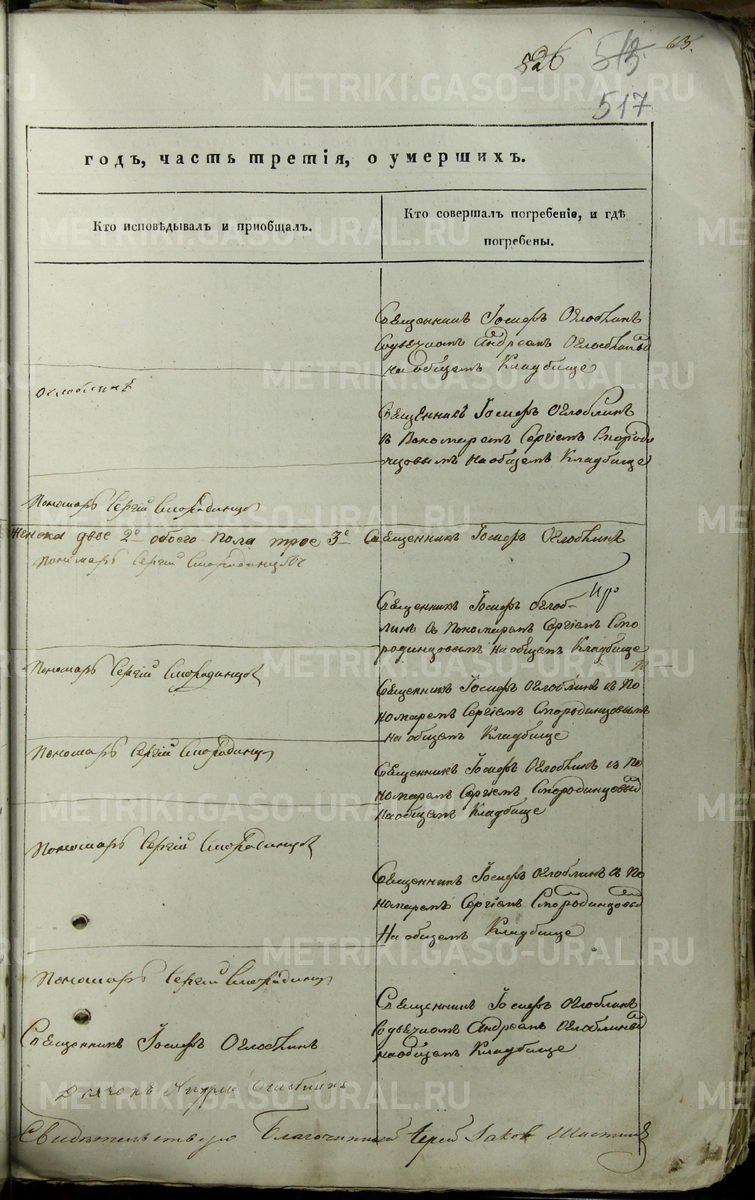 526 515 63.
517
годъ, часть третія, о умершихъ.
Кто исповѣдывалъ и приобщалъ.
Кто совершалъ погребеніе, и гдѣ
погребены.
Священникъ Іосифъ Оглоблинъ
Содьячкомъ Андреемъ Оглоблинымъ
на общемъ Кладбище
Оглоблинъ
Священникъ Іосифъ Оглоблинъ
съ Пономаремъ Сергіемъ Смороди
нцовымъ на общемъ Кладбище
Пономарь Сергій Смородинцовъ
женска двое 2е обоего пола трое 3е Священникъ Іосифъ Оглоблинъ
Пономарь Сергій Смородинцовъ
Священникъ Іосифъ Оглоб-
линъ съ Пономаремъ Сергіемъ Смо
родинцовымъ на общемъ Кладбище
Пономарь Сергій Смородинцовъ
Священникъ Іосифъ Оглоблинъ съ По
номаремъ Сергіемъ Смородинцовымъ
на общемъ Кладбище
Пономарь Сергій Смородинцовъ
Священникъ Іосифъ Оглоблинъ съ По
номаремъ Сергіемъ Смородинцовымъ
на общемъ Кладбище
Пономарь Сергій Смородинцовъ
Священникъ Іосифъ Оглоблинъ съ По
номаремъ Сергіемъ Смородинцовымъ
На общемъ Кладбище
Пономарь Сергій Смородинцовъ
Священникъ Іосифъ Оглоблинъ
Содьячкомъ Андреемъ Оглоблинымъ
на общемъ Кладбище
Священникъ Іосифъ Оглоблинъ
Дьячокъ Андрей Оглоблинъ
Свидѣтельствую Благочинный Іерей Іаковъ
METRIKI.GASO-URAL.RU